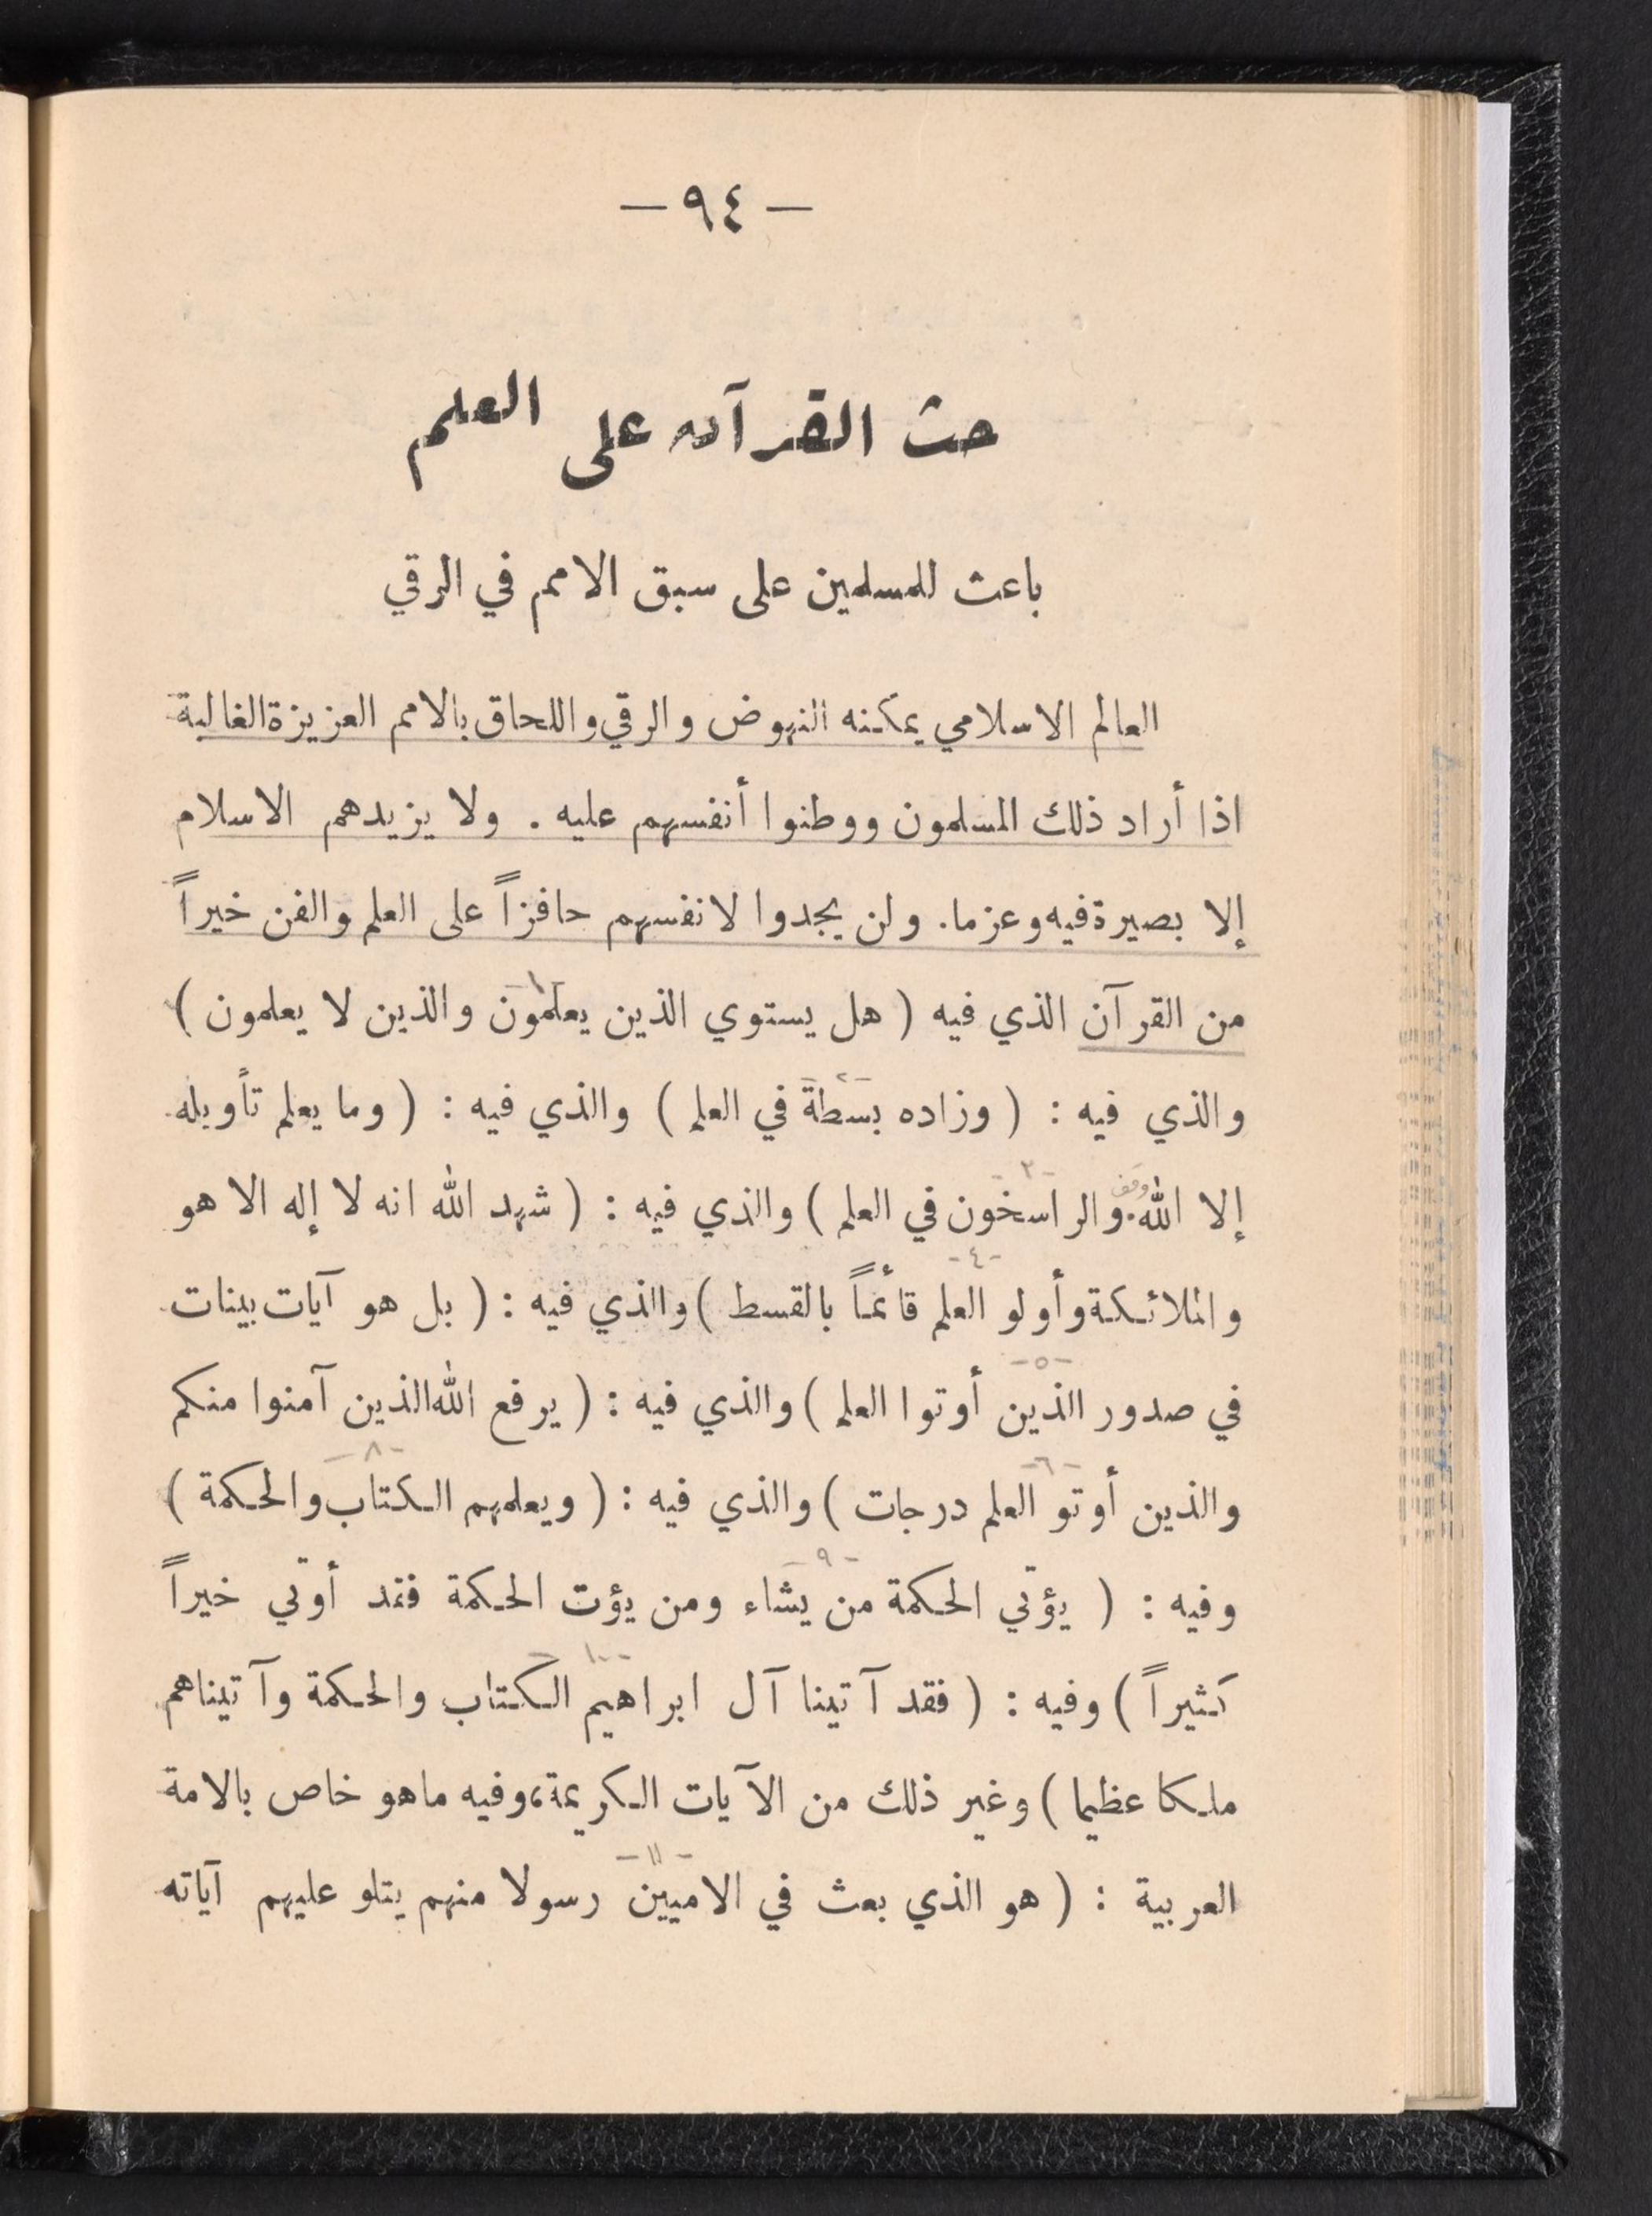 — ٩٤ —
حث القرآن على العلم
باعث للمسلمين على سبق الامم في الرقي
العالم الاسلامي يمكنه النهوض والرقي واللحاق بالامم العزيزة الغالبة
اذا أراد ذلك المسلمون ووطنوا أنفسهم عليه . ولا يزيدهم الاسلام
إلا بصيرة فيه وعزما . ولن يجدوا لانفسهم حافزاً على العلم والفن خيراً
-١-
من القرآن الذي فيه ( هل يستوي الذين يعلمون والذين لا يعلمون )
-٢-
والذي فيه : ( وزاده بسطة في العلم ) والذي فيه : ( وما يعلم تأويله
وقف -٣-
إلا الله . والراسخون في العلم ) والذي فيه : ( شهد الله انه لا إله الا هو
-٤-
والملائكة وأولو العلم قائماً بالقسط ) والذي فيه : ( بل هو آيات بينات
-٥-
في صدور الذين أوتوا العلم ) والذي فيه : ( يرفع الله الذين آمنوا منكم
-٦- -٨-
والذين أوتو العلم درجات ) والذي فيه : ( ويعلمهم الكتاب والحكمة )
-٩-
وفيه : ( يؤتي الحكمة من يشاء ومن يؤت الحكمة فقد أوتي خيراً
-١٠-
كثيراً ) وفيه : ( فقد آتينا آل ابراهيم الكتاب والحكمة وآتيناهم
ملكا عظيما ) وغير ذلك من الآيات الكريمة، وفيه ماهو خاص بالامة
-١١-
العربية : ( هو الذي بعث في الاميين رسولا منهم يتلو عليهم آياته